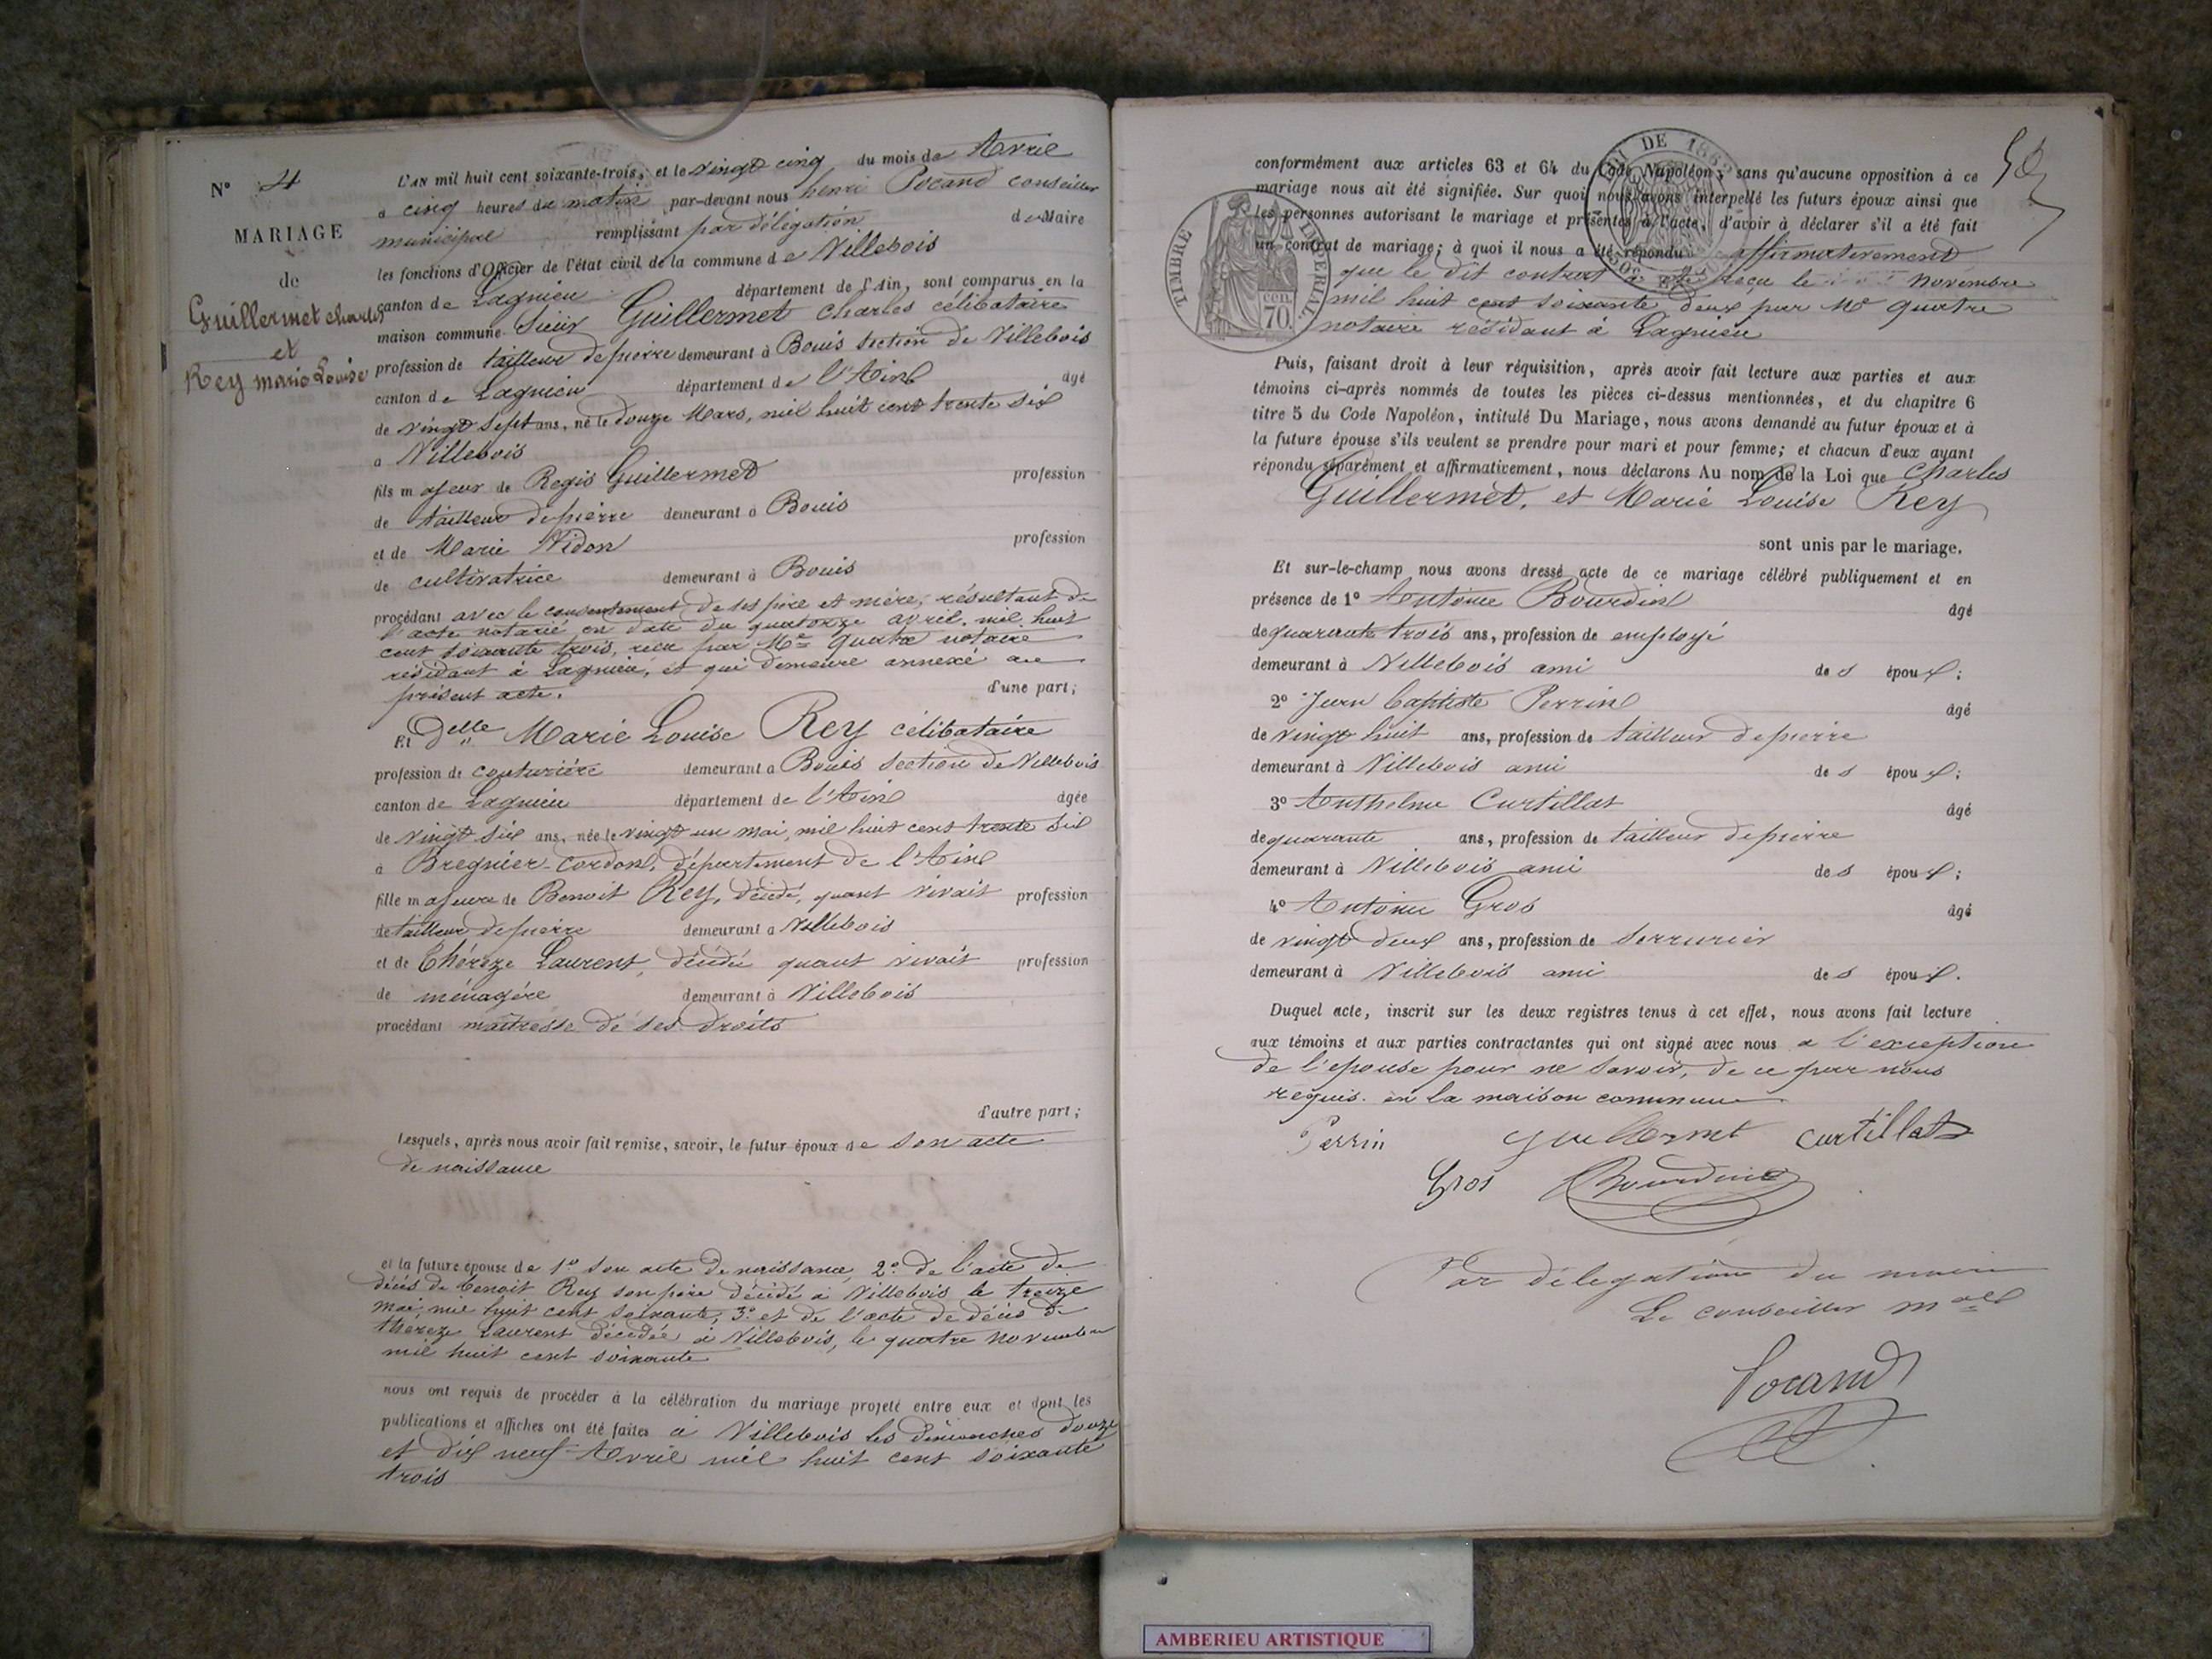 N° 4
MARIAGE
de
Guillermet Charles
et
Rey marie Louise
L'AN mil huit cent soixante-trois, et le vingt cinq du mois de Avril
a cinq heures du matin par-devant nous henri Pocand conseiller
municipal remplissant par délégation de Maire
les fonctions d'Officier de l'état civil de la commune de Villebois
canton de Lagnieu département de l'Ain, sont comparus en la
maison commune Sieur Guillermet Charles célibataire
profession de tailleur de pierre demeurant à Bouis section de Villebois
canton de Lagnieu département de l'Ain âgé
de vingt sept ans, né le douze Mars, mil huit cent trente six
a Villebois
fils majeur de Regis Guillermet profession
de tailleur de pierre demeurant à Bouis
et de Marie Vidon profession
de cultivatrice demeurant à Bouis
procédant avec le consentement de ses père et mère, résultant de
l'acte notarié en date du quatorze avril, mil huit
cent soixante trois, reçu par Me Quatre notaire
résidant à Lagnieu, et qui demeure annexé au
présent acte. d'une part;
Et Delle Marie Louise Rey célibataire
profession de couturière demeurant a Bouis section de Villebois
canton de Lagnieu département de l'Ain âgée
de vingt six ans, née le vingt un mai, mil huit cent trente six
à Bregnier-Cordon, département de l'Ain
fille majeure de Benoit Rey, décédé, quant vivait profession
de tailleur de pierre demeurant a Villebois
et de Thérèze Laurent, décédée quant vivait profession
de ménagère demeurant à Villebois
procédant maîtresse de ses droits
d'autre part;
Lesquels, après nous avoir fait remise, savoir, le futur époux de son acte
de naissance
et la future épouse de 1° son acte de naissance, 2° de l'acte de
décès de benoit Rey son père décédé à Villebois le treize
mai mil huit cent soixante, 3° et de l'acte de décès de
thérèze Laurent décédée à Villebois, le quatre novembre
mil huit cent soixante
nous ont requis de procéder à la célébration du mariage projeté entre eux et dont les
publications et affiches ont été faites à Villebois les dimanches douze
et dix neuf Avril mil huit cent soixante
trois
50
conformément aux articles 63 et 64 du Code Napoléon, sans qu'aucune opposition à ce
mariage nous ait été signifiée. Sur quoi nous avons interpellé les futurs époux ainsi que
les personnes autorisant le mariage et présentes à l'acte, d'avoir à déclarer s'il a été fait
un contrat de mariage; à quoi il nous a été répondu affirmativement
que le dit contrat a été reçu le novembre
mil huit cent soixante deux par Me Quatre
notaire résidant à Lagnieu
TIMBRE IMPERIAL
70 cen.
DE 1862
Puis, faisant droit à leur réquisition, après avoir fait lecture aux parties et aux
témoins ci-après nommés de toutes les pièces ci-dessus mentionnées, et du chapitre 6
titre 5 du Code Napoléon, intitulé Du Mariage, nous avons demandé au futur époux et à
la future épouse s'ils veulent se prendre pour mari et pour femme; et chacun d'eux ayant
répondu séparément et affirmativement, nous déclarons Au nom de la Loi que Charles
Guillermet, et Marie Louise Rey
sont unis par le mariage.
Et sur-le-champ nous avons dressé acte de ce mariage célébré publiquement et en
présence de 1° Antoine Bourdin âgé
de quarante trois ans, profession de employé
demeurant à Villebois ami des époux;
2° Jean baptiste Perrin âgé
de vingt huit ans, profession de tailleur de pierre
demeurant à Villebois ami des époux;
3° Anthelme Curtillat âgé
de quarante ans, profession de tailleur de pierre
demeurant à Villebois ami des époux;
4° Antoine Gros âgé
de vingt deux ans, profession de serrurier
demeurant à Villebois ami des époux.
Duquel acte, inscrit sur les deux registres tenus à cet effet, nous avons fait lecture
aux témoins et aux parties contractantes qui ont signé avec nous a l'exception
de l'épouse pour ne savoir, de ce par nous
requis. en la maison commune
Perrin guillermet Curtillat
Gros Bourdin
Par délégation du maire
Le conseiller mal
Pocand
AMBERIEU ARTISTIQUE